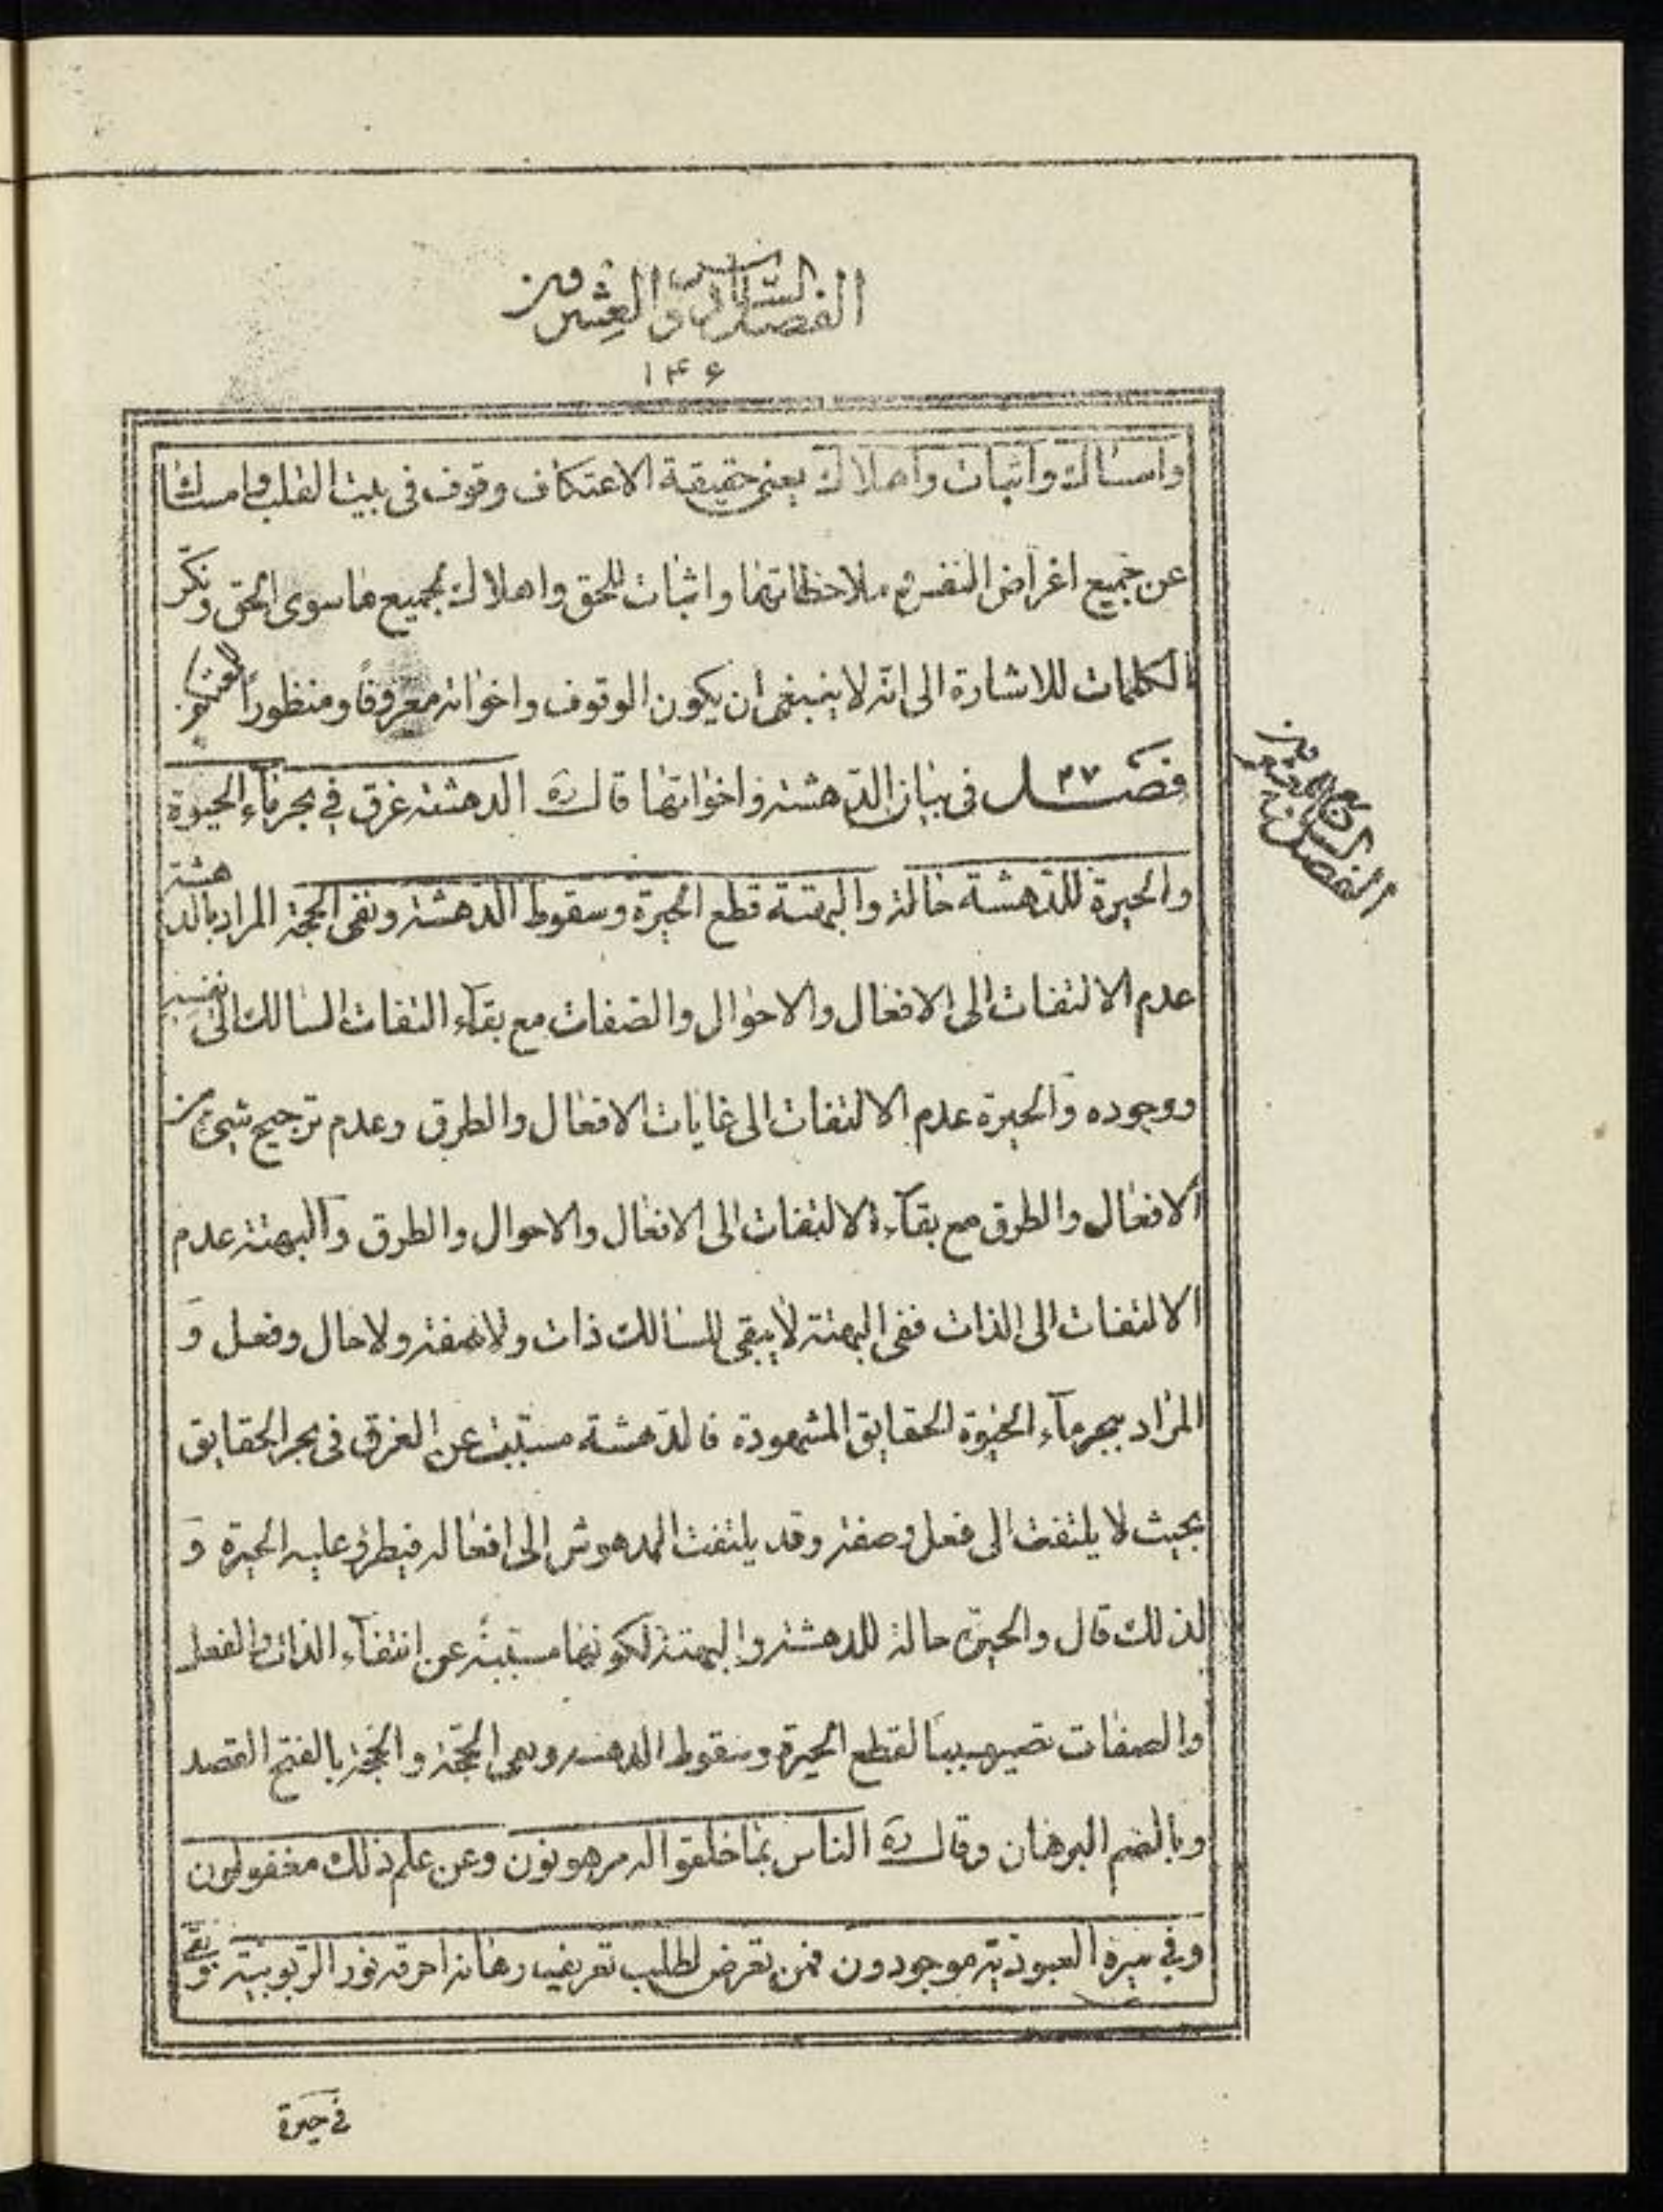 الفصل السادس والعشرون
١٤٦
وامساك واثبات واهلاك يعنى حقيقة الاعتكاف وقوف فى بيت القلب وامساك
عن جميع اغراض النفس و ملاحظاتها واثبات للحق واهلاك لجميع ما سوى الحق ونكّر
الكلمات للاشارة الى انّه لا ينبغى ان يكون الوقوف واخواته معروفاً ومنظوراً
فصل ٢٧ فى بيان الدّهشة واخواتها قال ره الدهشة غرق فى بحر ماء الحيوة
والحيرة للدّهشة حالة والبهتة قطع الحيرة وسقوط الدّهشة ونفى الحجة المراد بالدهشة
عدم الالتفات الى الافعال والاحوال والصفات مع بقآء التفات السالك الى نفسه
ووجوده والحيرة عدم الالتفات الى غايات الافعال والطرق وعدم ترجيح شيئ من
الافعال والطرق مع بقآء الالتفات الى الافعال والاحوال والطرق والبهتة عدم
الالتفات الى الذات ففى البهتة لا يبقى للسالك ذات ولا صفة ولا حال وفعل و
المراد ببحر مآء الحيوة الحقايق المشهودة فالدّهشة مسبّبة عن الغرق فى بحر الحقايق
بحيث لا يلتفت الى فعل وصفة وقد يلتفت المدهوش الى افعاله فيطرؤ عليه الحيرة و
لذلك قال والحيرة حالة للدهشة والبهتة لكونها مسبّبة عن انتفآء الذات والفعل
والصفات تصير سببا لقطع الحيرة وسقوط الدهشة ونفى الحجّة والحجّة بالفتح القصد
وبالضم البرهان وقال ره الناس بما خلقوا له مرهونون وعن علم ذلك مغفولون
وفى العبوديّة موجودون فمن تعرض لطلب تعريف رهانه احرقه نور الرّبوبيّة وبقى
فى حيرة
الفصل السابع والعشرون